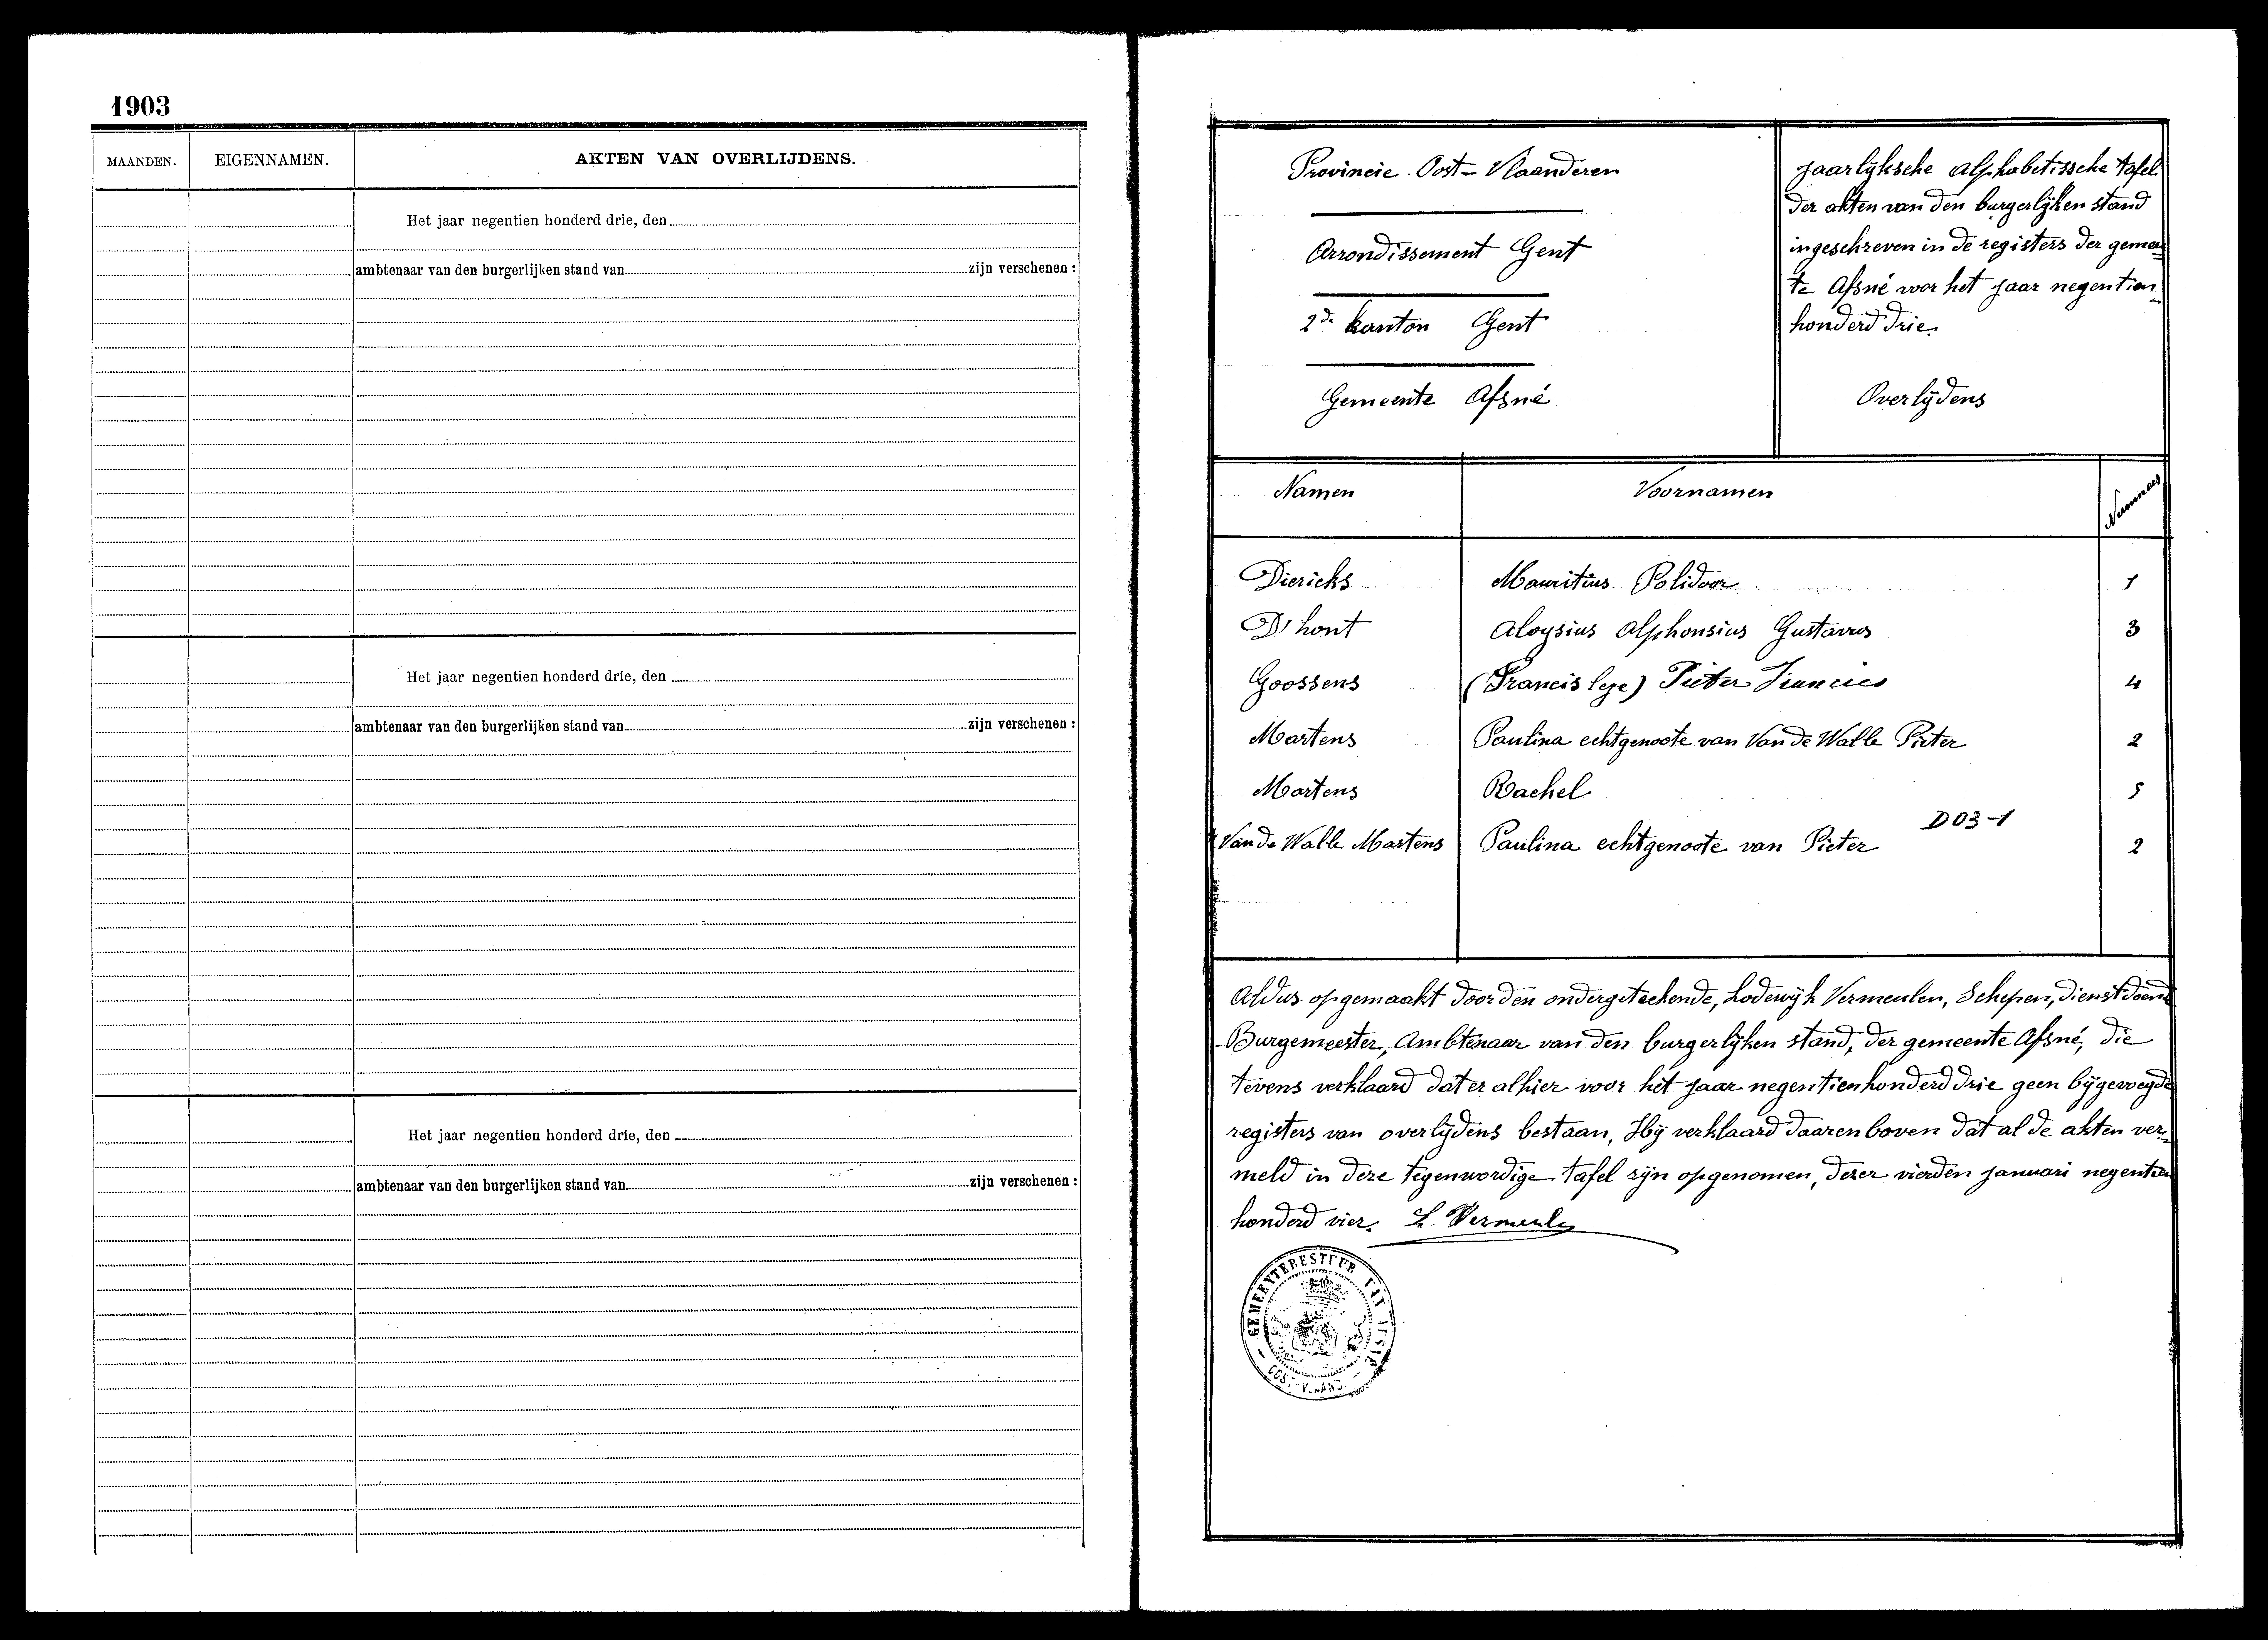 1903
MAANDEN. EIGENNAMEN. AKTEN VAN OVERLIJDENS.
Het jaar negentien honderd drie, den
ambtenaar van den burgerlijken stand van zijn verschenen :
Het jaar negentien honderd drie, den
ambtenaar van den burgerlijken stand van zijn verschenen :
Het jaar negentien honderd drie, den
ambtenaar van den burgerlijken stand van zijn verschenen :
Provincie Oost-Vlaanderen
Arrondissement Gent
2de kanton Gent
Gemeente Afsné
Jaarlyksche alphabetissche tafel
der akten van den burgerlyken stand
ingeschreven in de registers der gemeen
te Afsné voor het jaar negentien
honderd drie.
Overlydens
Namen Voornamen Nummers
Diericks Mauritius Polidoor 1
D'hont Aloysius Alphonsius Gustavus 3
Goossens (Francis lege) Pieter Francies 4
Martens Paulina echtgenoote van Van de Walle Pieter 2
Martens Rachel 5
D03-1
Van de Walle Martens Paulina echtgenoote van Pieter 2
Aldus opgemaakt door den ondergeteekende, Lodewyk Vermeulen, Schepen, dienstdoend
Burgemeester, Ambtenaar van den burgerlyken stand, der gemeente Afsné, die
tevens verklaard dat er alhier voor het jaar negentienhonderd drie geen bygevoegde
registers van overlydens bestaan, Hy verklaard daarenboven dat al de akten ver-
meld in deze tegenwordige tafel zyn opgenomen, dezer vierden januari negentien
honderd vier. L. Vermeulen
GEMEENTEBESTUUR VAN